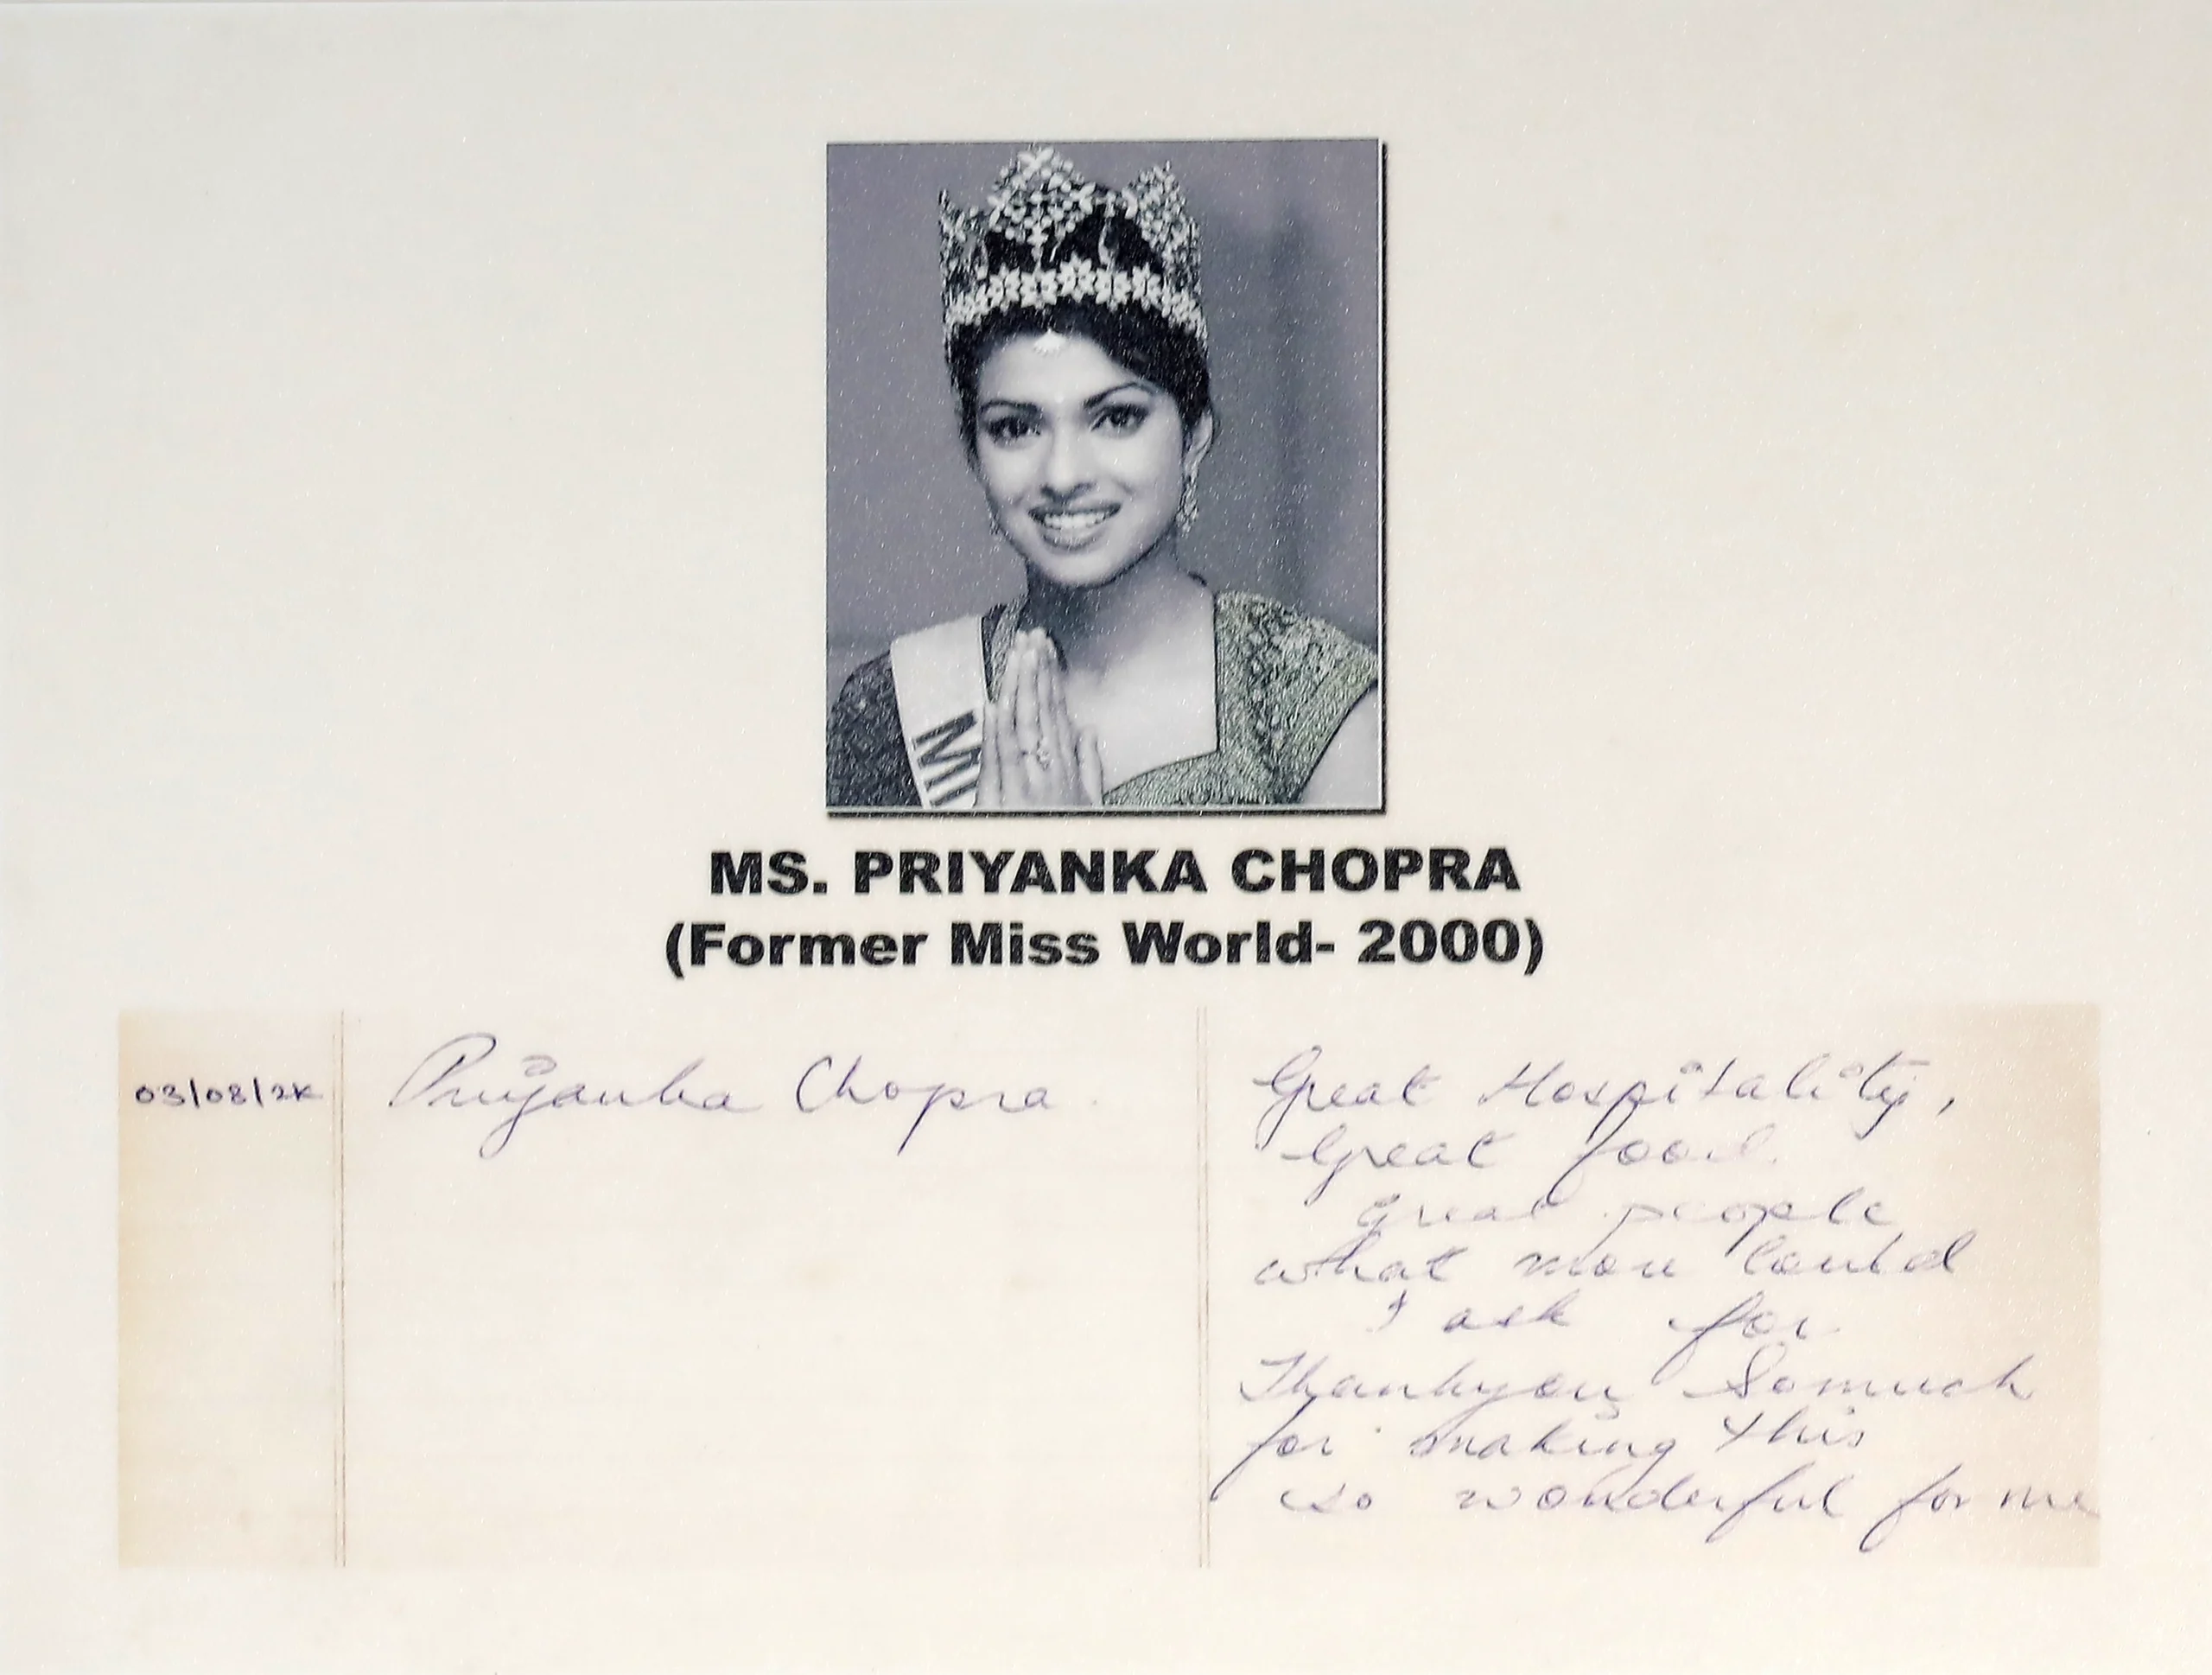 MI
MS. PRIYANKA CHOPRA
(Former Miss World- 2000)
03/08/2K
Priyanka Chopra.
Great Hospitality,
Great food.
great people
what more could
I ask for
Thankyou Somuch
for making this
so wonderful for me